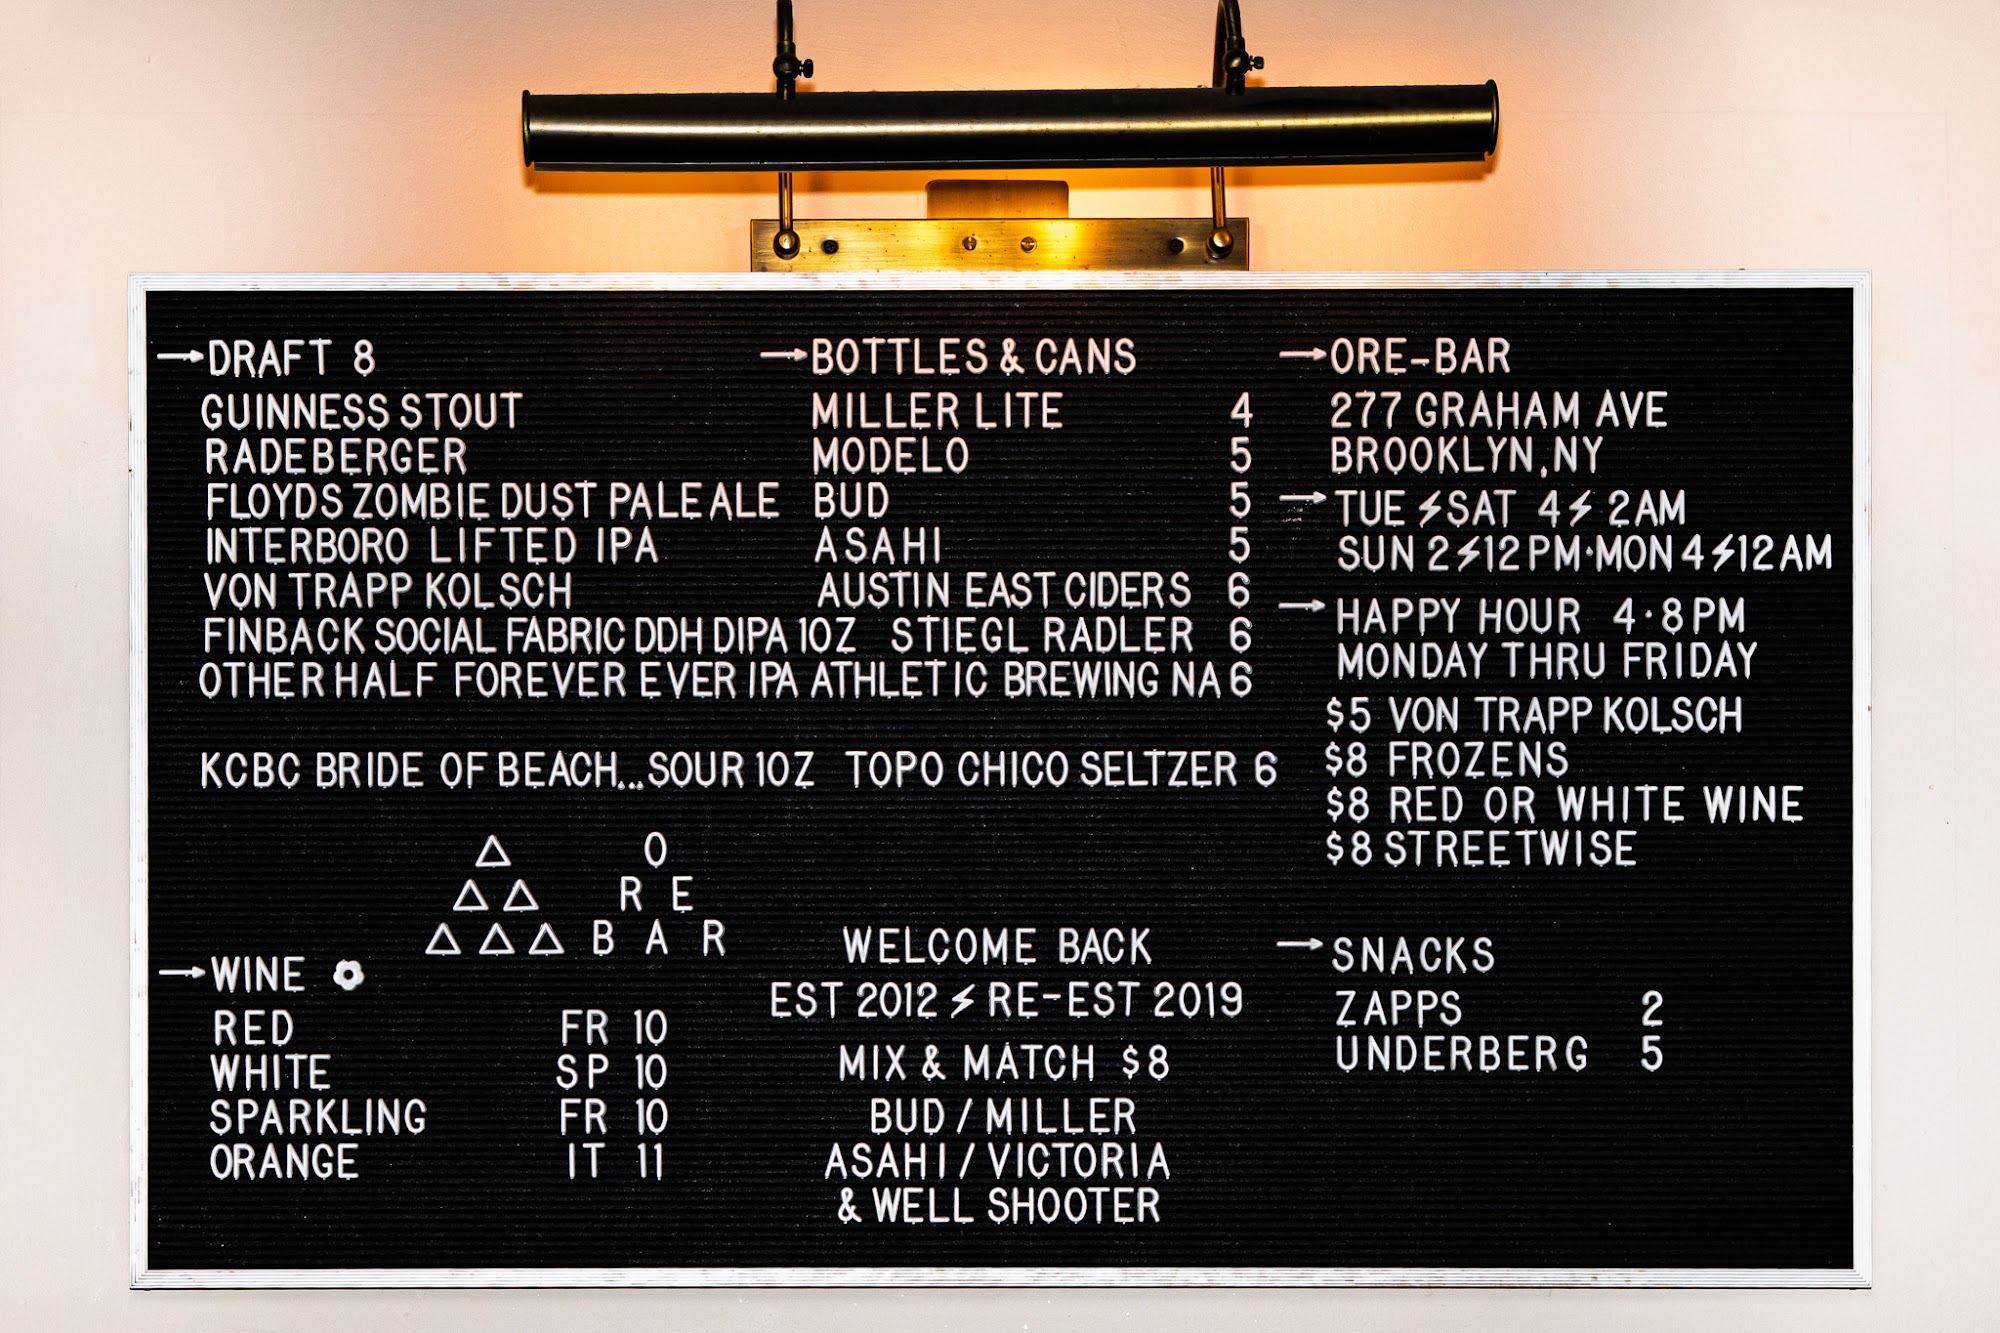 →DRAFT 8
GUINNESS STOUT
RADEBERGER
FLOYDS ZOMBIE DUST PALE ALE
INTERBORO LIFTED IPA
VON TRAPP KOLSCH
FINBACK SOCIAL FABRIC DDH DIPA 10Z
OTHER HALF FOREVER EVER IPA
KCBC BRIDE OF BEACH...SOUR 10Z
△ O
△ △ R E
△ △ △ B A R
→WINE
RED FR 10
WHITE SP 10
SPARKLING FR 10
ORANGE IT 11
→BOTTLES & CANS
MILLER LITE 4
MODELO 5
BUD 5
ASAHI 5
AUSTIN EAST CIDERS 6
STIEGL RADLER 6
ATHLETIC BREWING NA 6
TOPO CHICO SELTZER 6
WELCOME BACK
EST 2012 ⚡ RE-EST 2019
MIX & MATCH $8
BUD / MILLER
ASAHI / VICTORIA
& WELL SHOOTER
→ORE-BAR
277 GRAHAM AVE
BROOKLYN, NY
→TUE ⚡ SAT 4 ⚡ 2AM
SUN 2 ⚡ 12PM·MON 4 ⚡ 12AM
→HAPPY HOUR 4·8PM
MONDAY THRU FRIDAY
$5 VON TRAPP KOLSCH
$8 FROZENS
$8 RED OR WHITE WINE
$8 STREETWISE
→SNACKS
ZAPPS 2
UNDERBERG 5